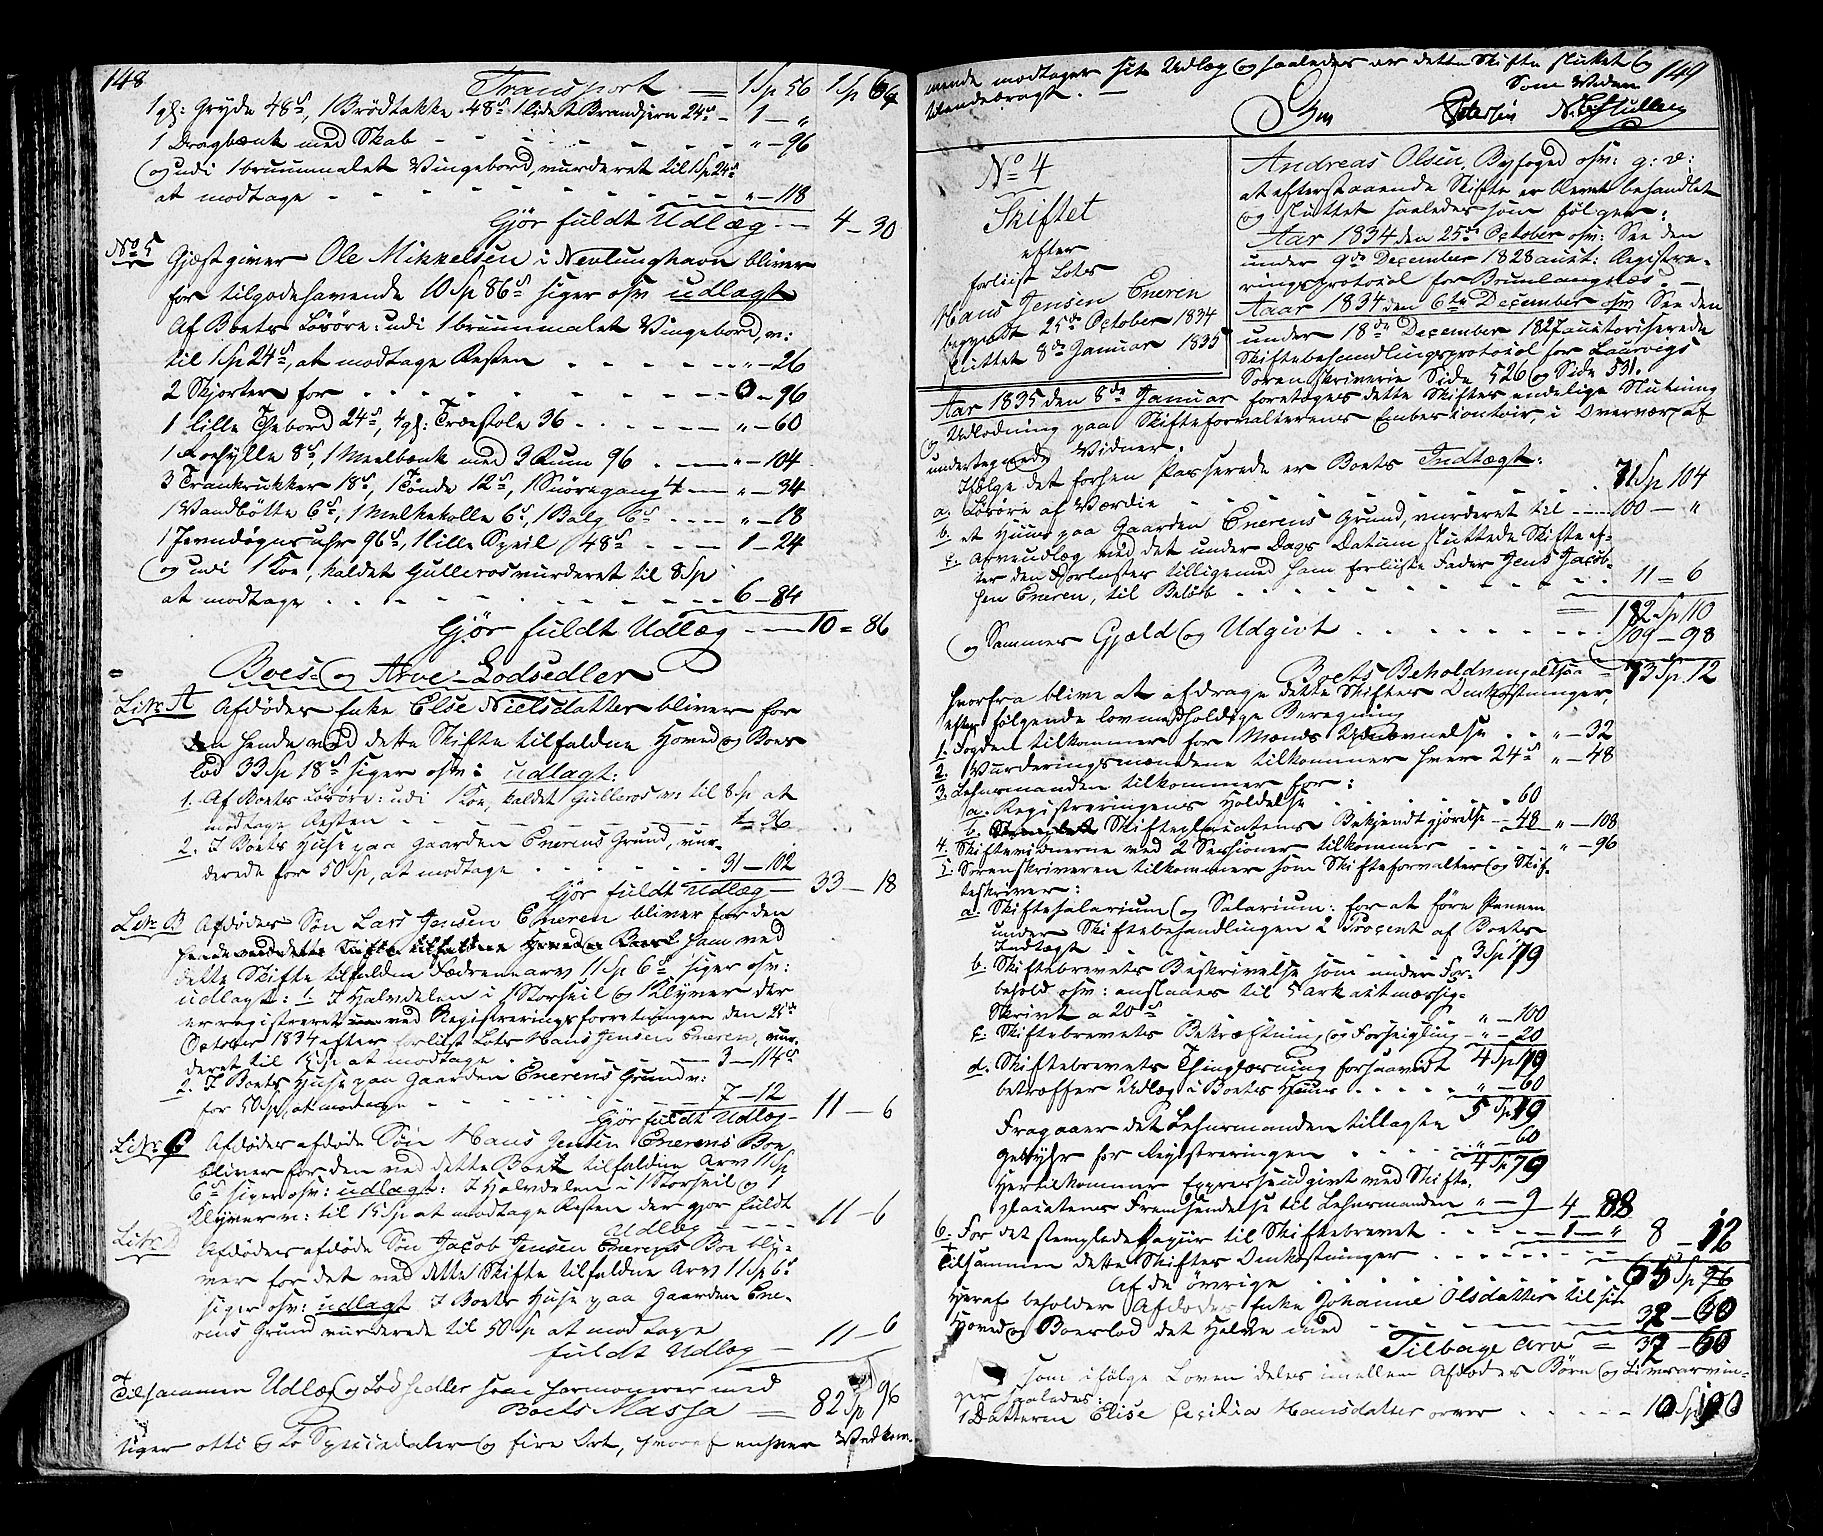 148
Transport — 1 Sp 56 1 Sp 64
1 gl: Gryde 48s, 1 Brødtakke 48s 1 lidet Brandjern 24s - 1 — „
1 Dragbænk med Skab - - - „ — 96
og udi 1 bruunmalet Vingebord, vurderet til 1 Sp 24s
at modtage - - - „ — 118
Gjør fuldt Udlæg — 4 — 30
No 5 Gjæstgiver Ole Mikkelsen i Nevlunghavn bliver
for tilgodehavende 10 Sp 86s siger osv udlagt
Af Boets Løsøre: udi 1 bruunmalet Vingebord, v:
til 1 Sp 24s, at modtage Resten - - - „ — 26
2 Skjorter for - - - 0 — 96
1 lille Thebord 24s, 4 gl: Træstole 36 - - - „ — 60
1 Roehylle 8s, 1 Meelbænk med 3 Rum 96 - - „ — 104
3 Trankrukker 18s, 1 Tønde 12s, 1 Snøregang 4 — „ — 34
1 Vandbøtte 6s, 1 Melkekolle 6s, 1 Balg 6s - - „ — 18
1 Jerndøgnsuhr 96s, 1 lille Speil 48s - - 1 — 24
og udi 1 Koe, kaldet Gulleros vurderet til 8 Sp
at modtage - - - 6 — 84
Gjør fuldt Udlæg — 10 = 86
Boes- og Arve-Lodsedler
Litr A Afdødes Enke Else Nielsdatter bliver for
den hende ved dette Skifte tilfaldne Hoved og Boes
lod 33 Sp 18s siger osv: udlagt:
1. Af Boets Løsøre: udi 1 Koe, kaldet Gulleros v: til 8 Sp at
modtage Resten - - - 1 — 36
2. I Boets Huse paa Gaarden Enerens Grund, vur-
derede for 50 Sp, at modtage - - - 31 — 102
Gjør fuldt Udlæg — 33 — 18
Litr B Afdødes Søn Lars Jensen Eneren bliver for den
ham ved
dette Skifte tilfaldne Fædrenearv 11 Sp 6s siger osv:
udlagt: 1. I Halvdelen i 1 Storseil og 1 Klyver der
er registreret ved Registreringsforretningen den 25de
October 1834 efter forliist Lots Hans Jensen Eneren, vur-
deret til 15 Sp at modtage - - - 3 — 114s
2. I Boets Huse paa Gaarden Enerens Grund v:
for 50 Sp, at modtage - - - 7 — 12
Gjør fuldt Udlæg — 11 — 6
Litr C Afdødes afdøde Søn Hans Jensen Enerens Boe
bliver for den ved dette Boe tilfaldne Arv 11 Sp
6s siger osv: udlagt: I Halvdelen i 1 Storseil og 1
Klyver v: til 15 Sp at modtage Resten der gjør fuldt
Udlæg - - - 11 — 6
Litr D Afdødes afdøde Søn Jacob Jensen Enerens Boe bli-
ver for det ved dette Skifte tilfaldne Arv 11 Sp 6s
siger osv: udlagt I Boets Huse paa Gaarden Ene-
rens Grund vurderede til 50 Sp at modtage
fuldt Udlæg — 11 — 6
Tilsammen Udlæg og Lodsedler som harmonerer med
Boets Massa = 82 Sp 96
siger otti og to Speciedaler og fire Ort, hvoraf enhver Vedkom-
149
mende modtager sit Udlæg og saaledes er dette Skifte sluttet og
tilendebragt. — Som Viden
Petersen
No 4
Skiftet
efter
forliist Lots
Hans Jensen Eneren
begyndt 25de October 1834
sluttet 8de Januar 1835
Andreas Olsen, Byfoged osv: g: v:
at efterstaaende Skifte er blevet behandlet
og sluttet saaledes som følger:
Aar 1834 den 25de October osv: See den
under 9de December 1828 autt: Registre-
ringsprotocol for Brunlangnæs. —
Aar 1834 den 6te December osv See den
under 18de December 1827 autoriserede
Skiftebehandlingsprotocol for Laurvigs
Sorenskriverie Side 526 og Side 531.
Aar 1835 den 8de Januar foretoges dette Skiftes endelige Slutning
og Udlodning paa Skifteforvalterens Embedscontoir, i Overvær af
undertegnede Vidner.
Ifølge det forhen Passerede er Boets Indtægt:
a. Løsøre af Værdie - - - 71 Sp 104
b. et Huus paa Gaarden Enerens Grund, vurderet til — 100 — „
c. Arveudlæg ved det under Dags Datum sluttede Skifte ef-
ter den Forladtes tilligemed ham forliiste Fader Jens Jacob-
sen Eneren, til Beløb - - - 11 = 6
= 182 Sp 110
og Sammes Gjæld og Udgivt - - - 109 — 98
Boets Beholdning altsaa = 73 Sp. 12
hvorfra blive at afdrage dette Skiftes Omkostninger,
efter følgende lovmedholdige Beregning
1. Fogden tilkommer for Mænds Udnævnelse - - „ — 32
2. Vurderingsmændene tilkommer hver 24s „ — 48
3. Lehnsmanden tilkommer for:
a. Registreringens Holdelse - - - 60
b. Skifteplacatens Bekjendtgjørelse — 48 „ — 108
4. Skiftevidnerne ved 2 Sessioner tilkommer - - - „ — 96
5. Sorenskriveren tilkommer som Skifteforvalter og Skif-
teskriver:
a. Skiftesalarium og Salarium: for at føre Pennen
under Skiftebehandlingen 2 Procent af Boets
Indtægt - - - 3 Sp 79
b. Skiftebrevets Beskrivelse som under For-
behold osv: anslaaes til 5 Ark aktmæssig-
Skrivt a 20s - - - „ — 100
c. Skiftebrevets Bekræftning og Forseigling — „ — 20
4 Sp 79
d. Skiftebrevets Thinglæsning forsaavidt
betræffer Udlæg i Boets Huus - - - „ — 60
5 Sp 19
Fragaaer det Lehnsmanden tillagte
Gebyhr for Registreringen - - - „ — 60
4 Sp 79
Hertilkommer Expressudgivt med Skifte-
placatens Fremsendelse til Lehnsmanden „ — 9 4 — 88
6. For det stemplede Papiir til Skiftebrevet - - - 1 — „
Tilsammen dette Skiftes Omkostninger - - - 8 — 12
Af de øvrige - - - 65 Sp
Heraf beholder Afdødes Enke Johanne Olsdatter til sit
Hoved og Boeslod det Halve med - - - 32 — 60
Tilbage Arv = 32 — 60
som ifølge Loven deles imellem Afdødes Børn og Livsarvin-
ger saaledes:
1 Datteren Elise Cecilia Hansdatter arver - - - 10 Sp 100